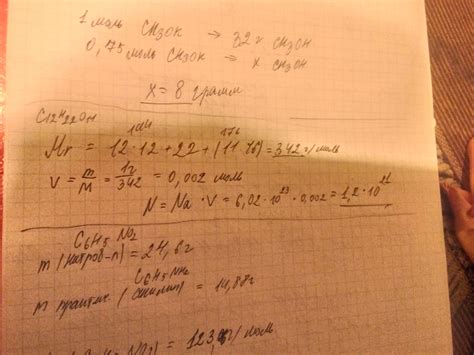 1 моль CH3OK → 32г CH3OH
0,75 моль CH3OK → x CH3OH
x = 8 грамм
C12H22O11
144 176
Mr = 12·12+22+(11·16)=342г/моль
V = m/M = 1г/342 = 0,002 моль
N = Na · V = 6,02·10^23·0,002=1,2·10^21
C6H5NO2
m (нитроб-л) = 24,6г
C6H5NH2
m практич. (анилин) = 14,88г
= 123г/моль